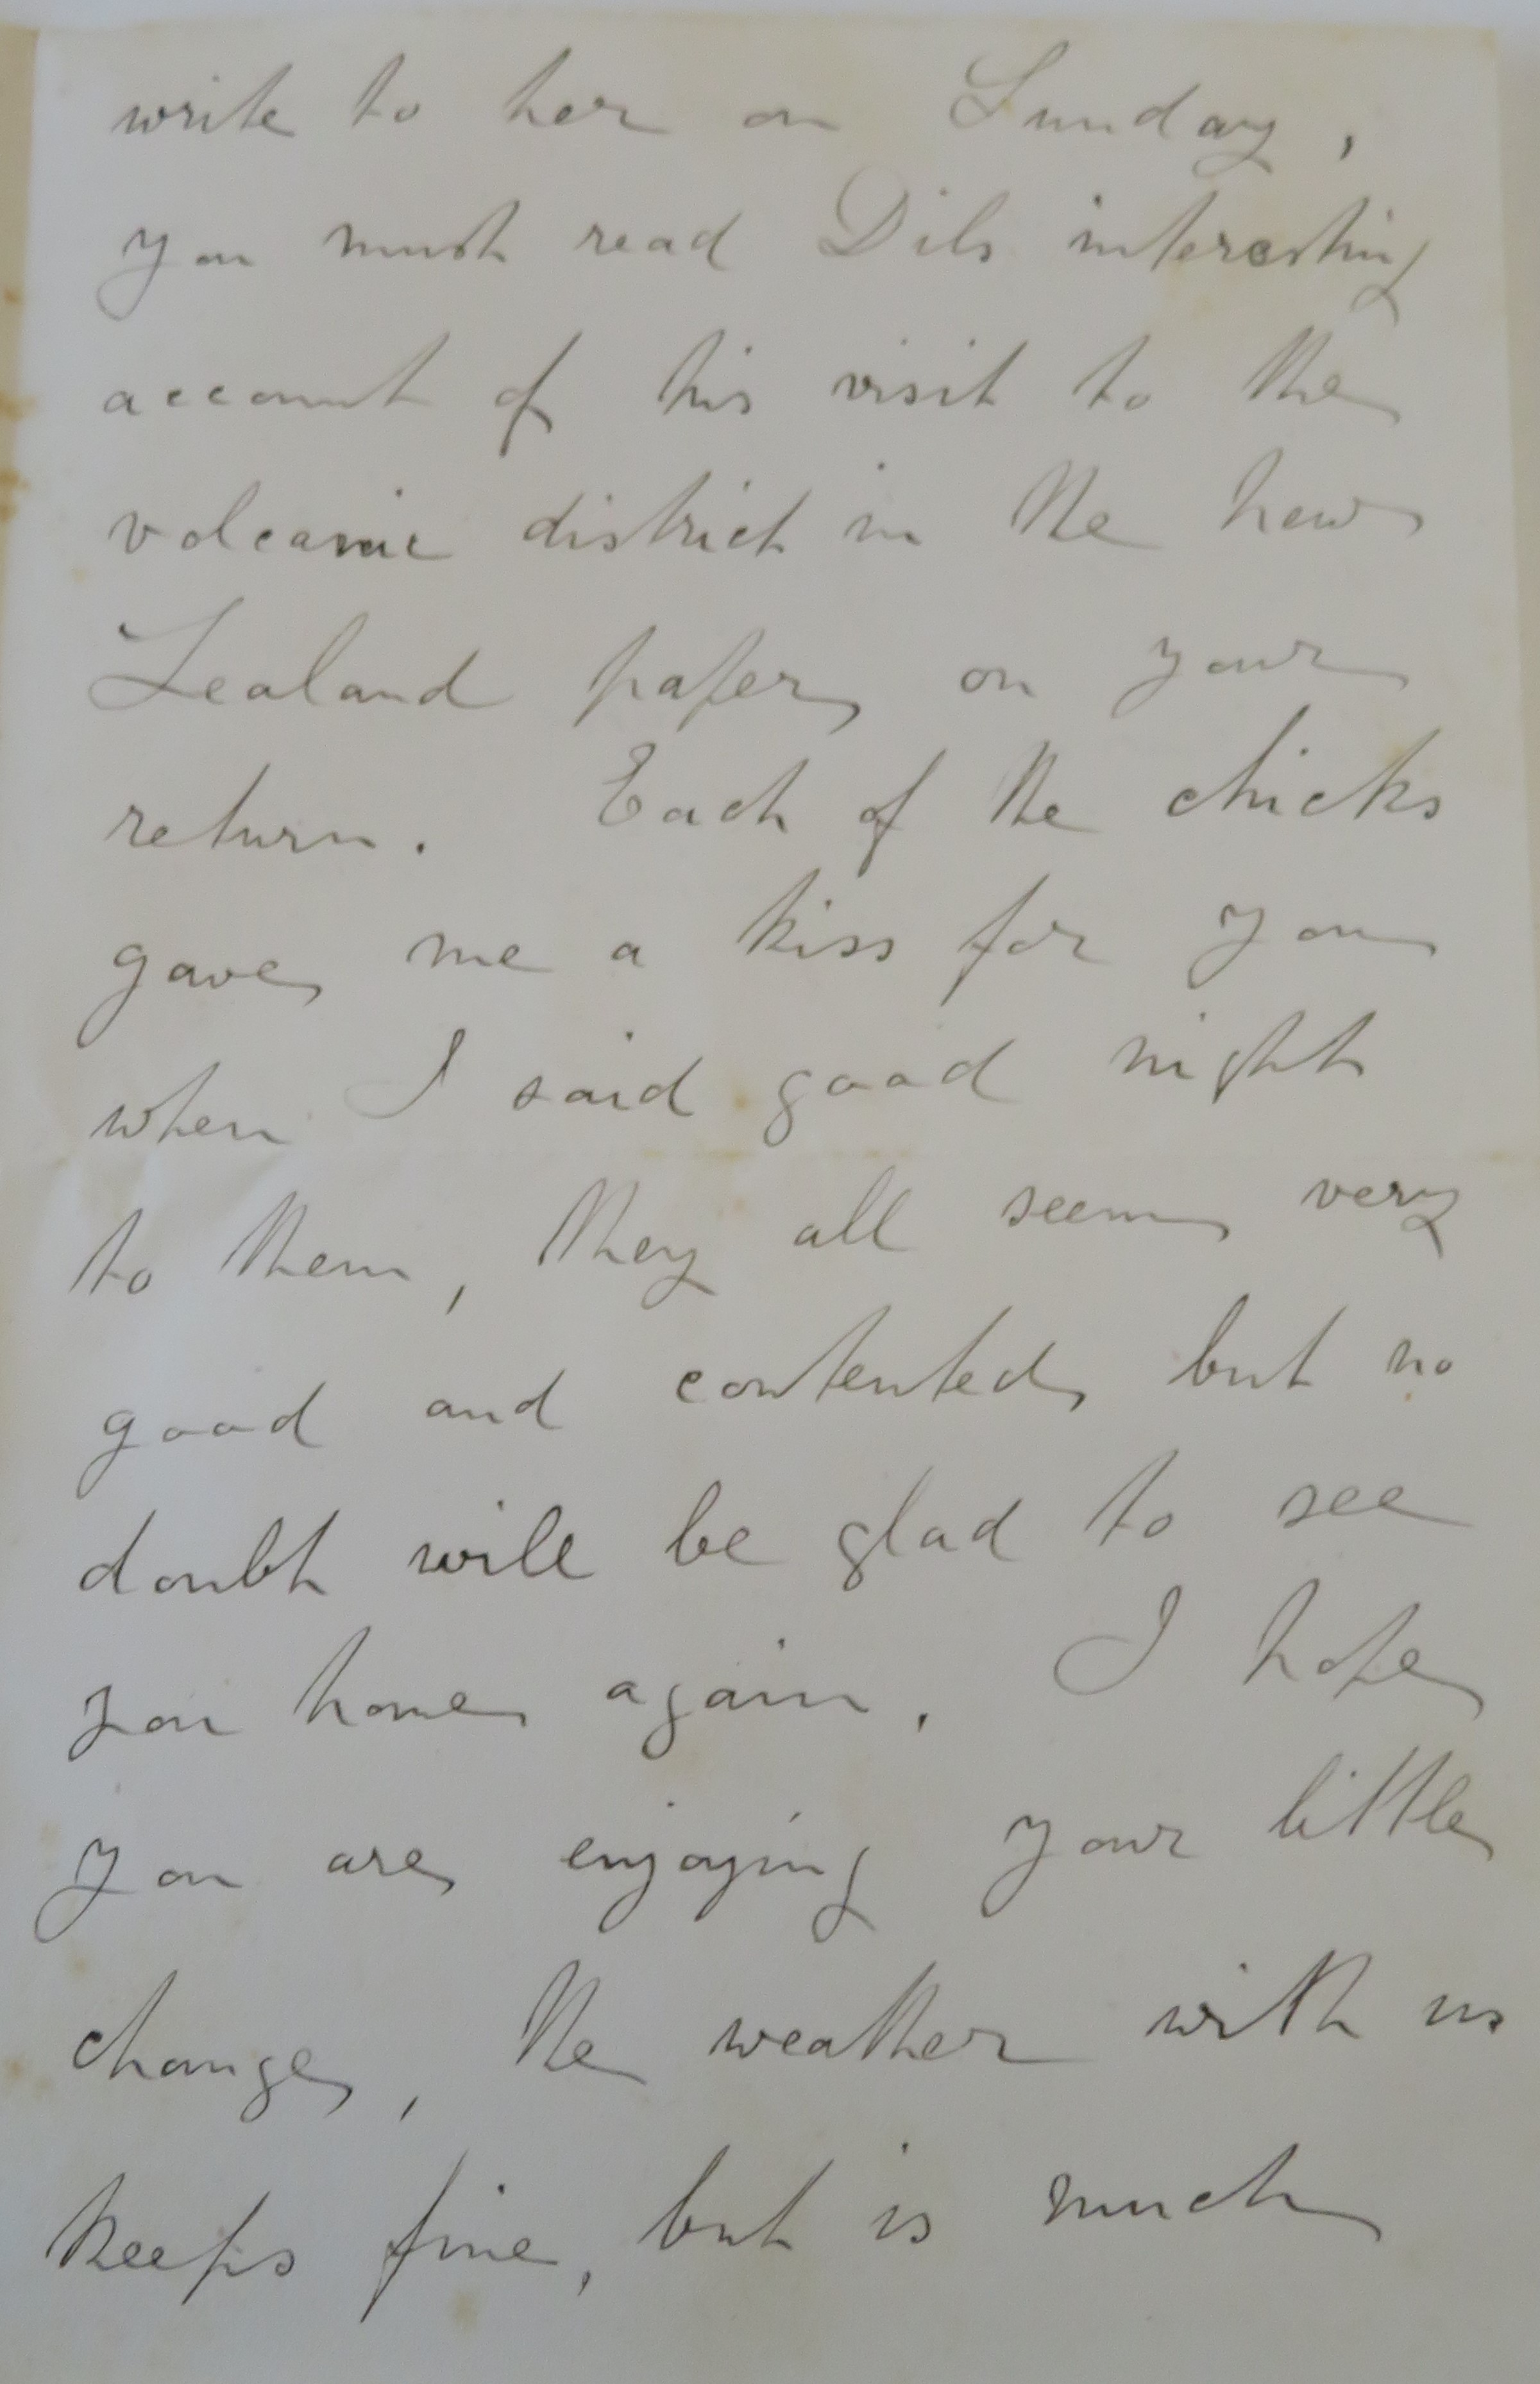 write to her on Sunday,
you must read Dils interesting
account of his visit to the
volcanic district in the New
Zealand paper on your
return. Each of the chicks
gave me a kiss for you
when I said good night
to them, they all seem very
good and contented, but no
doubt will be glad to see
you home again. I hope
you are enjoying your little
change, the weather with us
keeps fine, but is much